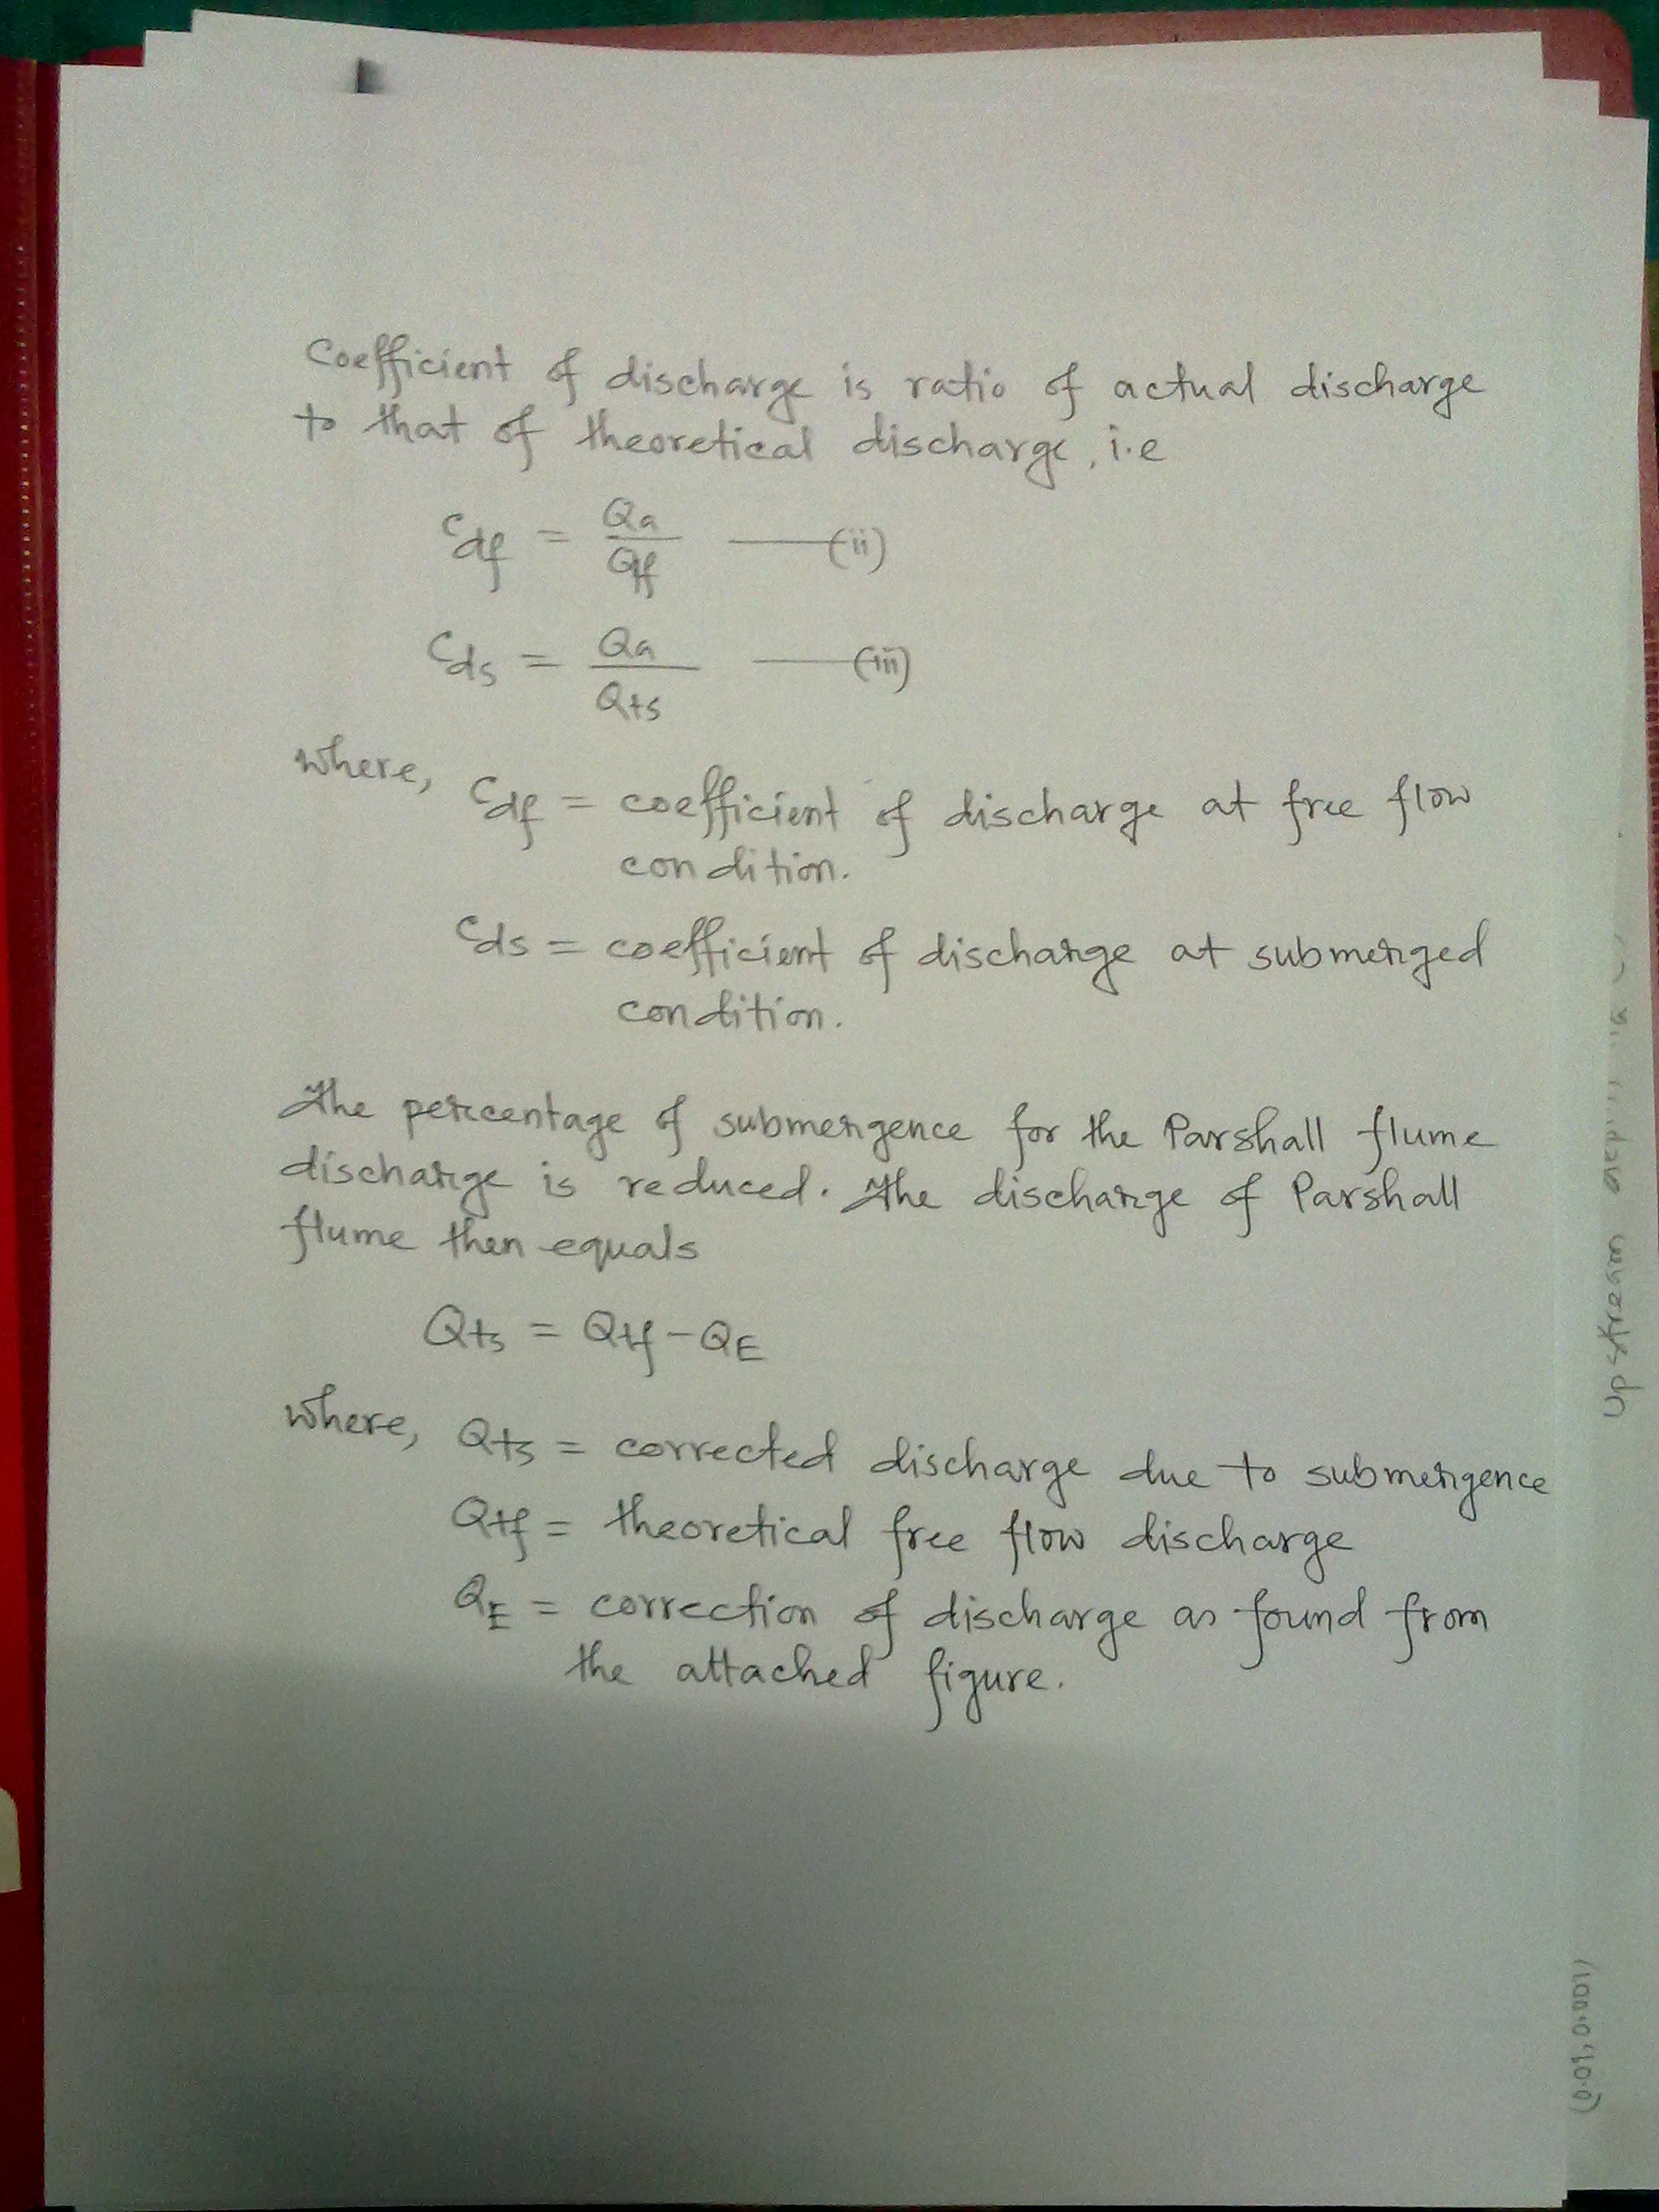 Coefficient of discharge is ratio of actual discharge
to that of theoretical discharge, i.e
Cdf = Qa / Qtf —(ii)
Cds = Qa / Qts —(iii)
where, Cdf = coefficient of discharge at free flow
condition.
Cds = coefficient of discharge at submerged
condition.
The percentage of submergence for the Parshall flume
discharge is reduced. The discharge of Parshall
flume then equals
Qts = Qtf - QE
where, Qts = corrected discharge due to submergence
Qtf = theoretical free flow discharge
QE = correction of discharge as found from
the attached figure.
Upstream
(0.01, 0.001)